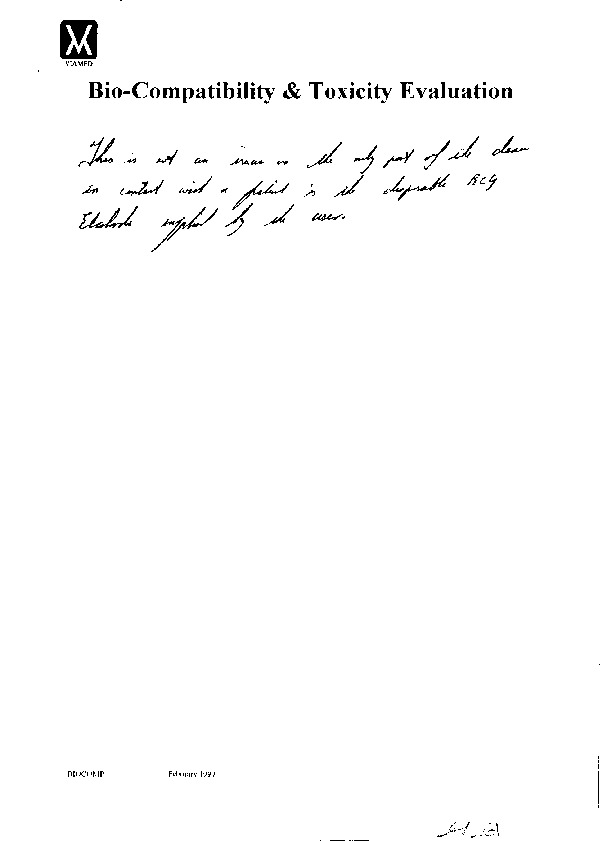 VIAMED
Bio-Compatibility & Toxicity Evaluation
This is not an issue as the only part of the
in contact with a patient is the disposable ECG
Electrode supplied by the user.
BIOCOMP February